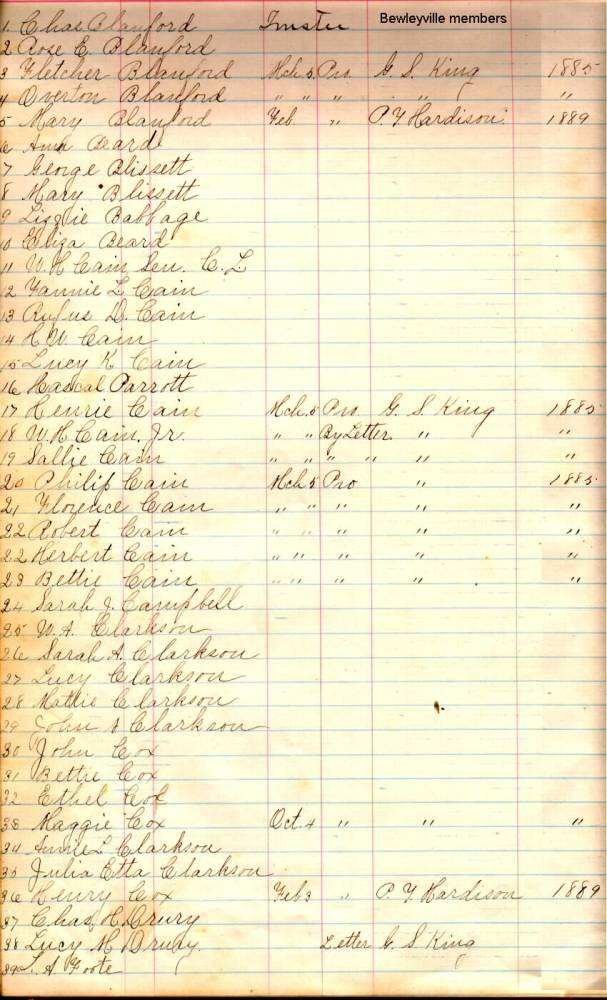 Bewleyville members
1. Chas Blanford Trustee
2 Rose E. Blanford
3 Fletcher Blanford Mch 5 Pro. G. S. King 1885
4 Overton Blanford " " " " "
5 Mary Blanford Feb " P. Y. Hardison 1889
6 Ann Beard
7 George Blissett
8 Mary Blissett
9 Lizzie Babbage
10 Eliza Beard
11 W. H. Cain Sen. C. L
12 Fannie L Cain
13 Rufus D. Cain
14 H. W. Cain
15 Lucy K Cain
16 Hascal Parrott
17 Henrie Cain Mch. 5 Pro. G. S. King 1885
18 W. H. Cain, Jr. " " By Letter. " "
19 Sallie Cain " " " " " "
20 Philip Cain Mch 5 Pro " 1885
21 Florence Cain " " " " "
22 Robert Cain " " " " "
22 Herbert Cain " " " " "
23 Bettie Cain " " " " "
24 Sarah J. Campbell
25 W. A. Clarkson
26 Sarah A. Clarkson
27 Lucy Clarkson
28 Mattie Clarkson
29 John Clarkson
30 John Cox
31 Bettie Cox
32 Ethel Cox
33 Maggie Cox Oct. 4 " " "
34 Annie L Clarkson
35 Julia Etta Clarkson
36 Henry Cox Feb 3 " P. Y Hardison 1889
37 Chas, H. Drury
38 Lucy M Drury. Letter G. S King
39 L. A. Foote